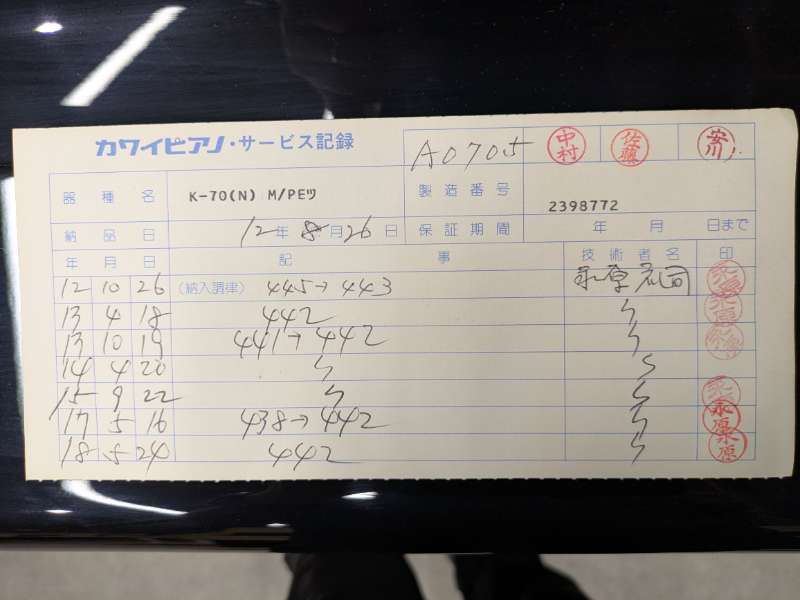 カワイピアノ・サービス記録
A0705 中村 佐藤 安川
器種名 K-70(N) M/PEツ 製造番号 2398772
納品日 12年8月26日 保証期間 年 月 日まで
年 月 日 記 事 技術者名 印
12 10 26 (納入調律) 445→443
13 4 18 442 〃
13 10 19 441→442 〃
14 4 20 〃 〃
15 9 22 〃 〃
17 5 16 438→442 〃 永原
18 5 24 442 〃 永原